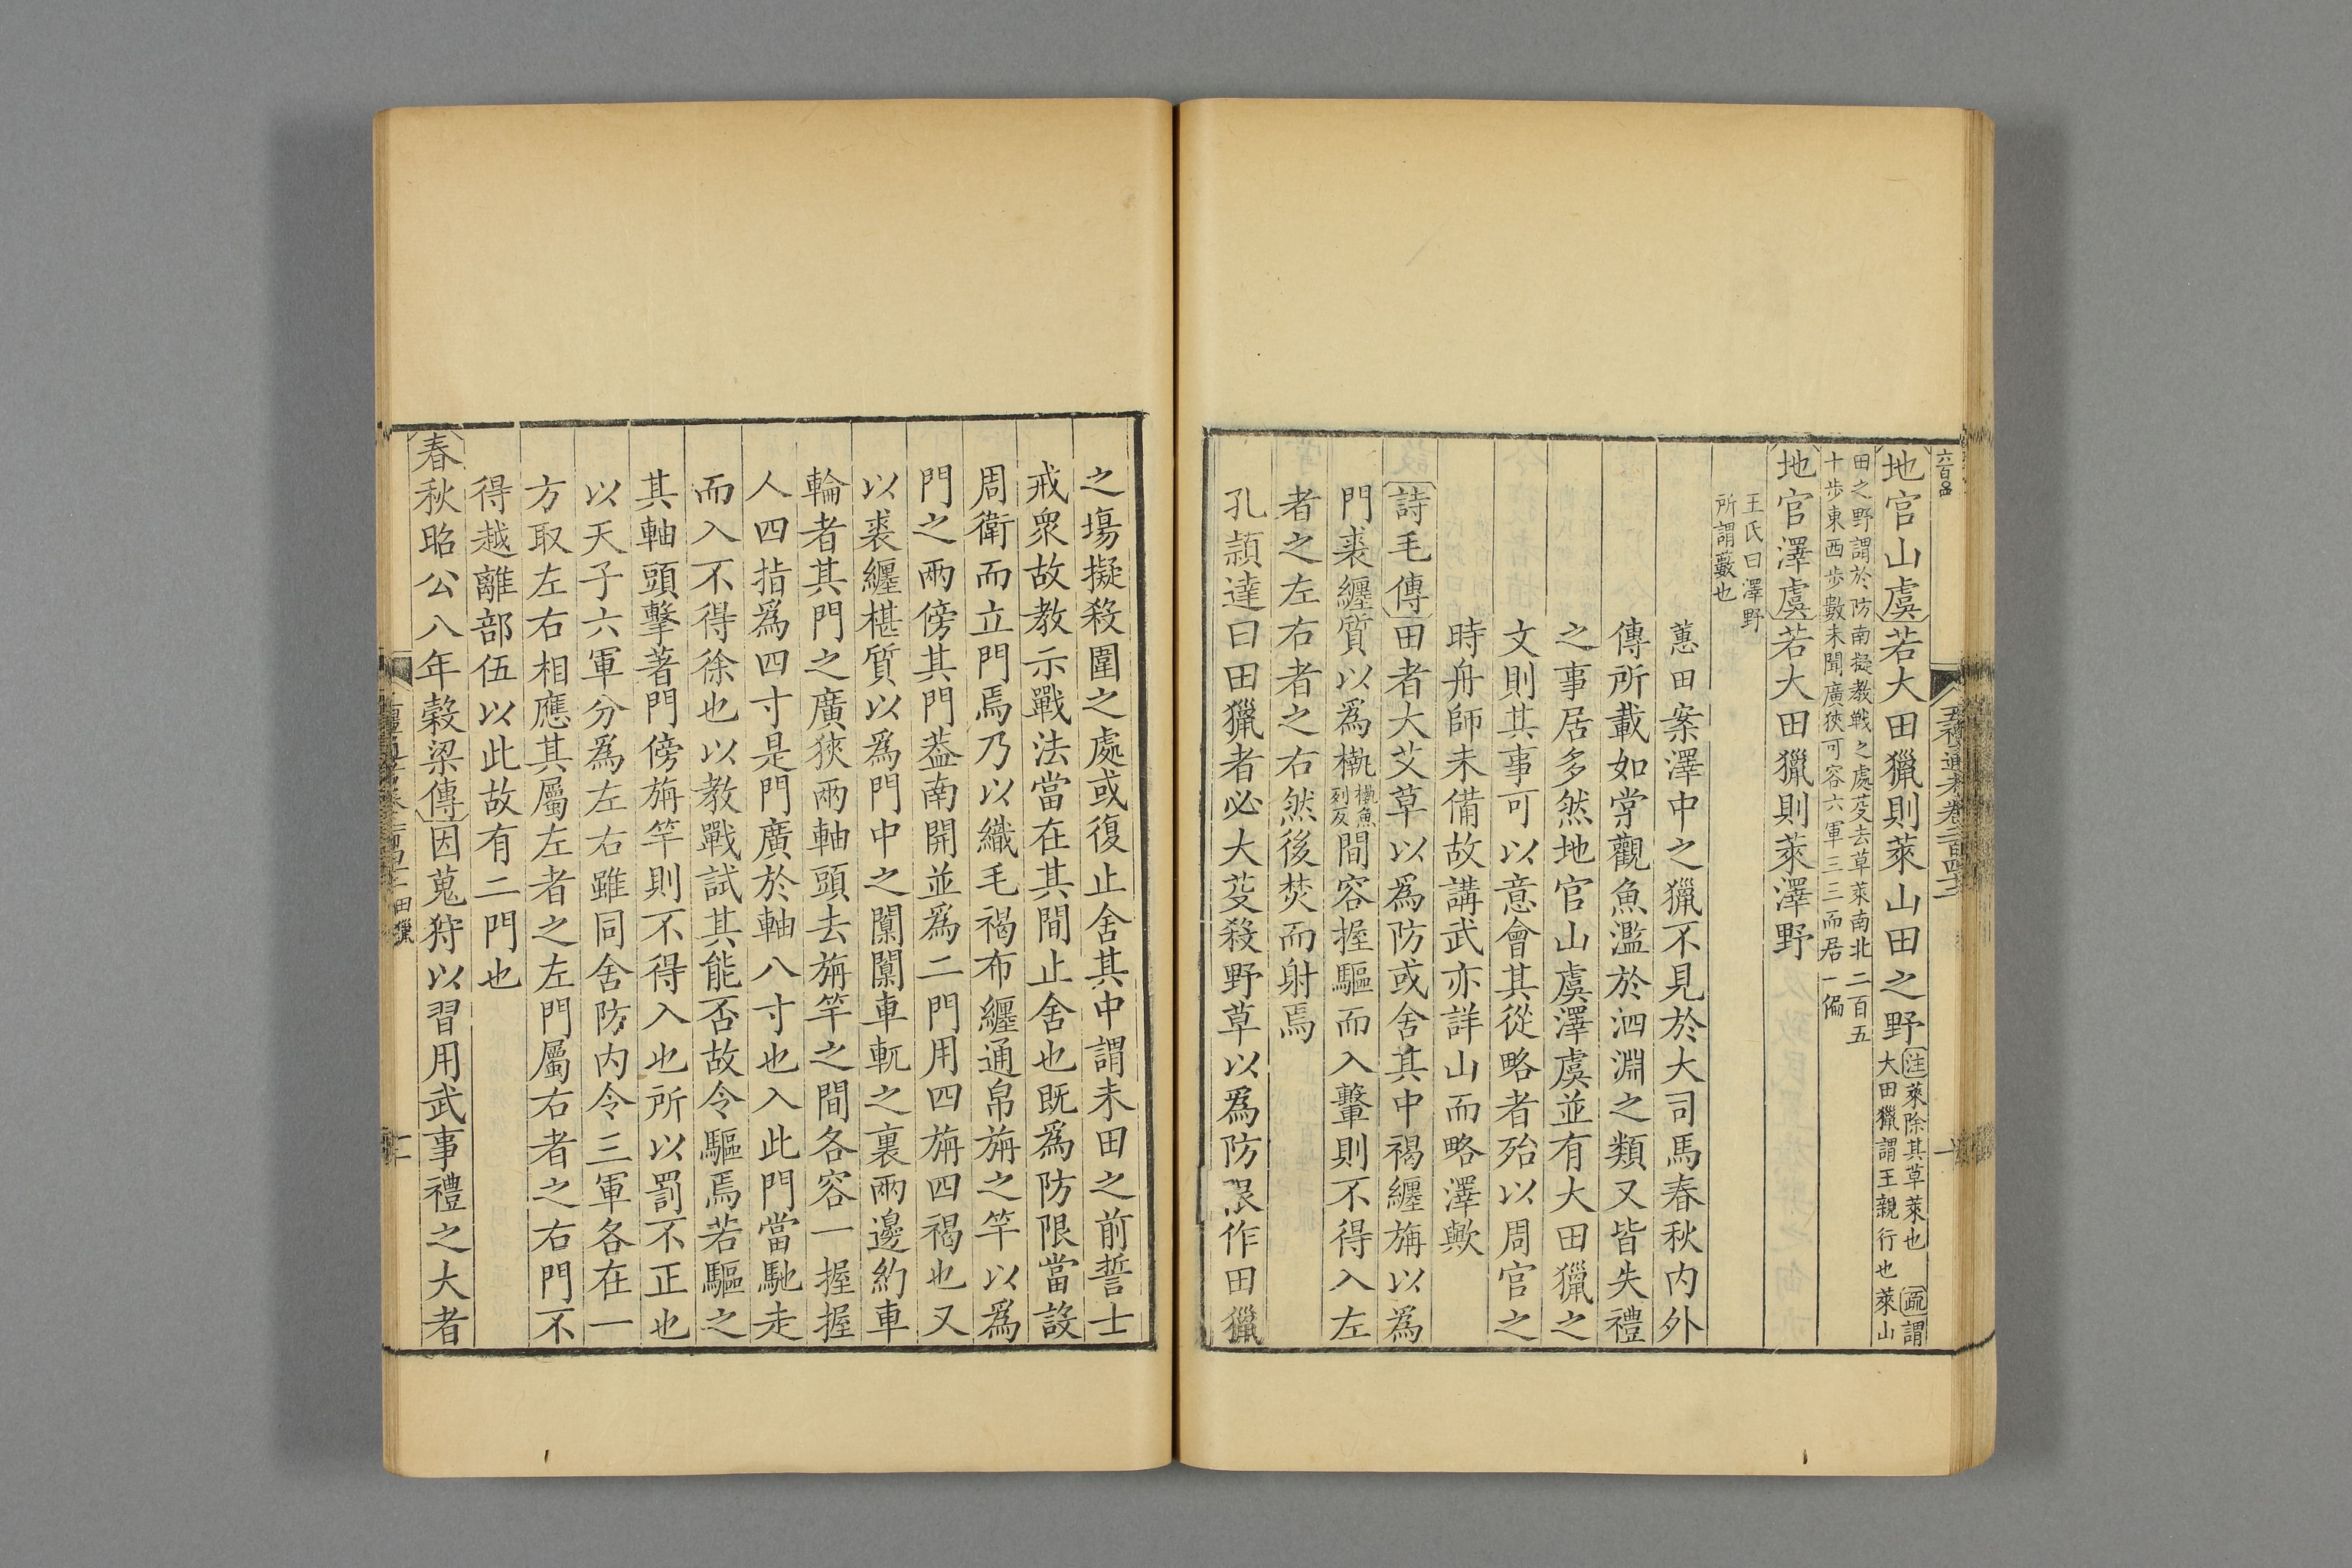 地官山虞若大田獵則萊山田之野注萊除其草萊也疏謂
大田獵謂王親行也萊山
田之野謂於防南擬教戰之處芟去草萊南北二百五
十步東西步數未聞廣狹可容六軍三三而居一偏
地官澤虞若大田獵則萊澤野
王氏曰澤野
所謂藪也
蕙田案澤中之獵不見於大司馬春秋內外
傳所載如嘗觀魚濫於泗淵之類又皆失禮
之事居多然地官山虞澤虞並有大田獵之
文則其事可以意會其從略者殆以周官之
時舟師未備故講武亦詳山而略澤歟
詩毛傳田者大艾草以爲防或舍其中褐纏旃以爲
門裘纏質以爲槷槷魚列反間容握驅而入轚則不得入左
者之左右者之右然後焚而射焉
孔頴達曰田獵者必大芟殺野草以爲防限作田獵
之塲擬殺圍之處或復止舍其中謂未田之前誓士
戒衆故教示戰法當在其間止舍也既爲防限當設
周衛而立門焉乃以織毛褐布纏通帛旃之竿以爲
門之兩傍其門葢南開並爲二門用四旃四褐也又
以裘纏椹質以爲門中之闑闑車軏之裏兩邊約車
輪者其門之廣狹兩軸頭去旃竿之間各容一握握
人四指爲四寸是門廣於軸八寸也入此門當馳走
而入不得徐也以教戰試其能否故令驅焉若驅之
其軸頭擊著門傍旃竿則不得入也所以罰不正也
以天子六軍分爲左右雖同舍防內令三軍各在一
方取左右相應其屬左者之左門屬右者之右門不
得越離部伍以此故有二門也
春秋昭公八年榖梁傳因蒐狩以習用武事禮之大者